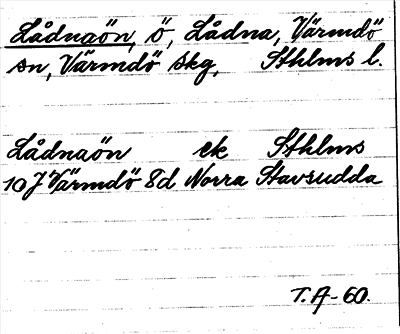 Lådnaön, ö, Lådna, Värmdö
sn, Värmdö skg, Sthlms l.
Lådnaön ek Sthlms
10J Värmdö 8d Norra Stavsudda
T.A-60.